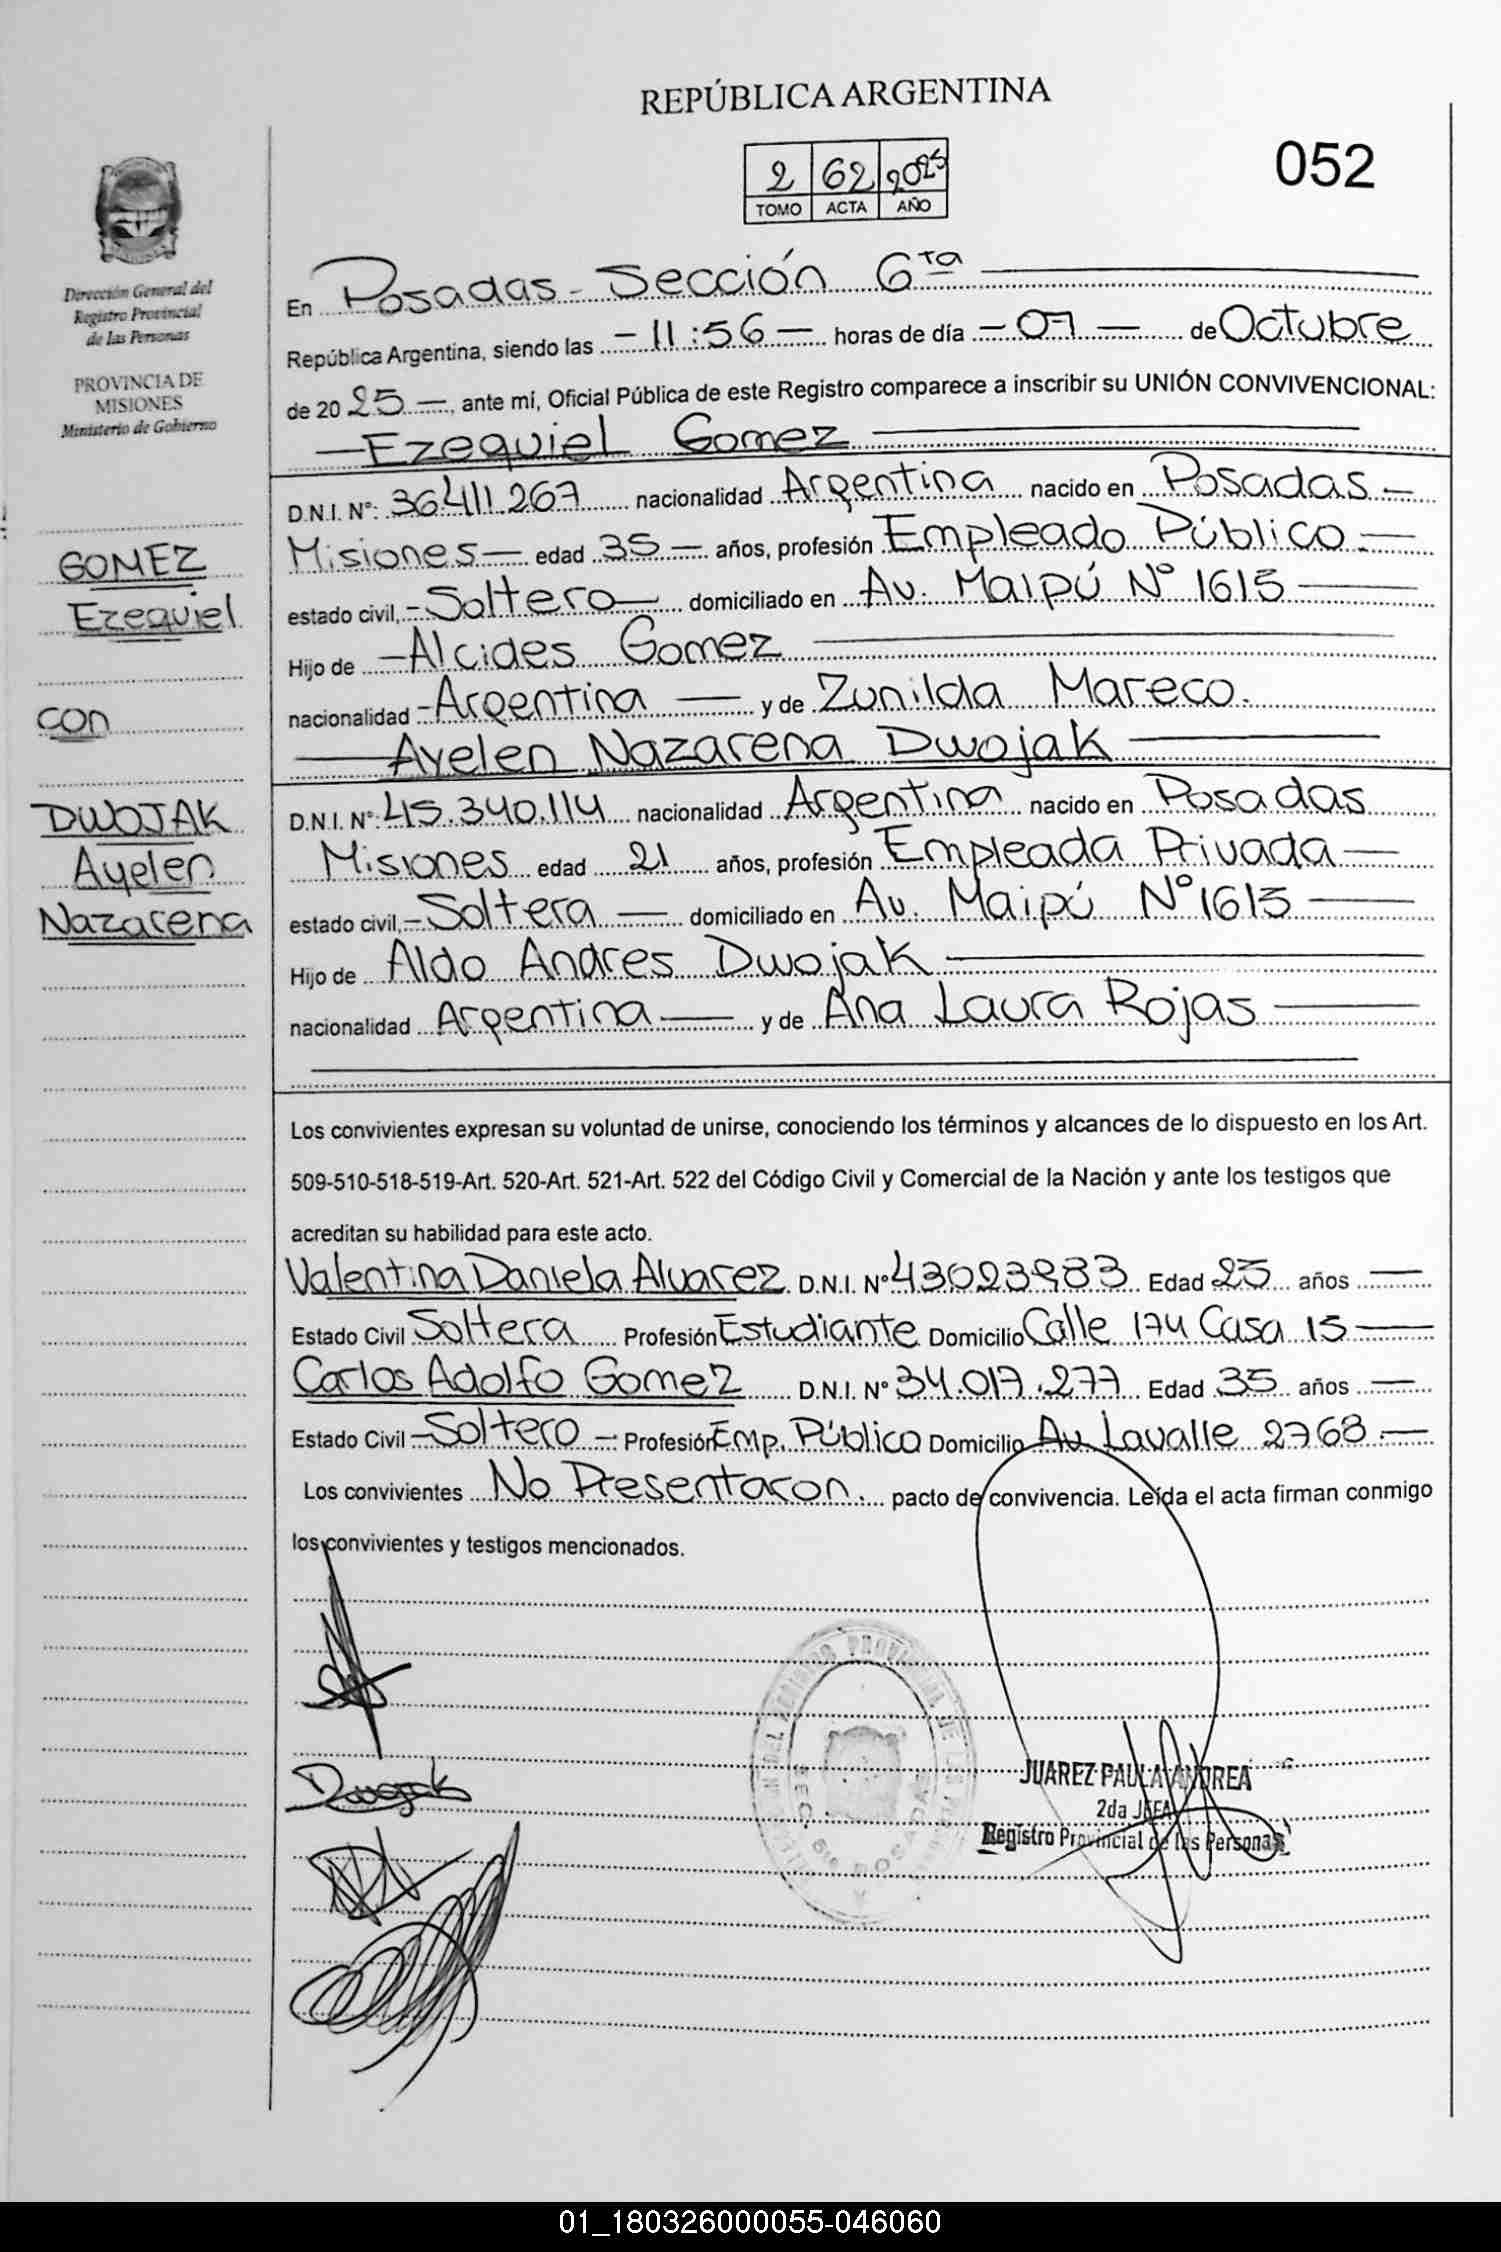 REPÚBLICA ARGENTINA
052
2 62 2025
TOMO ACTA AÑO
Dirección General del
Registro Provincial
de las Personas
PROVINCIA DE
MISIONES
Ministerio de Gobierno
GOMEZ
Ezequiel
con
DWOJAK
Ayelen
Nazarena
En Posadas - Sección 6ta
República Argentina, siendo las - 11:56 - horas de día - 07 - de Octubre
de 2025 -, ante mí, Oficial Pública de este Registro comparece a inscribir su UNIÓN CONVIVENCIONAL:
Ezequiel Gomez
D.N.I. Nº: 36.411.267 nacionalidad Argentina nacido en Posadas -
Misiones - edad 35 - años, profesión Empleado Público. -
estado civil, - Soltero - domiciliado en Av. Maipú Nº 1615
Hijo de - Alcides Gomez
nacionalidad - Argentina - y de Zunilda Mareco.
Ayelen Nazarena Dwojak
D.N.I. Nº: 45.340.114 nacionalidad Argentina nacido en Posadas
Misiones edad 21 años, profesión Empleada Privada -
estado civil, - Soltera - domiciliado en Av. Maipú Nº 1615
Hijo de Aldo Andres Dwojak
nacionalidad Argentina - y de Ana Laura Rojas
Los convivientes expresan su voluntad de unirse, conociendo los términos y alcances de lo dispuesto en los Art.
509-510-518-519-Art. 520-Art. 521-Art. 522 del Código Civil y Comercial de la Nación y ante los testigos que
acreditan su habilidad para este acto.
Valentina Daniela Alvarez D.N.I. Nº 43023983 Edad 25 años -
Estado Civil Soltera Profesión Estudiante Domicilio Calle 174 Casa 15 -
Carlos Adolfo Gomez D.N.I. Nº 34.017.277 Edad 35 años -
Estado Civil - Soltero - Profesión Emp. Público Domicilio Av. Lavalle 2768 -
Los convivientes No Presentaron. pacto de convivencia. Leída el acta firman conmigo
los convivientes y testigos mencionados.
Dwojak
JUAREZ PAULA ANDREA
2da JEFA
Registro Provincial de las Personas
01_180326000055-046060